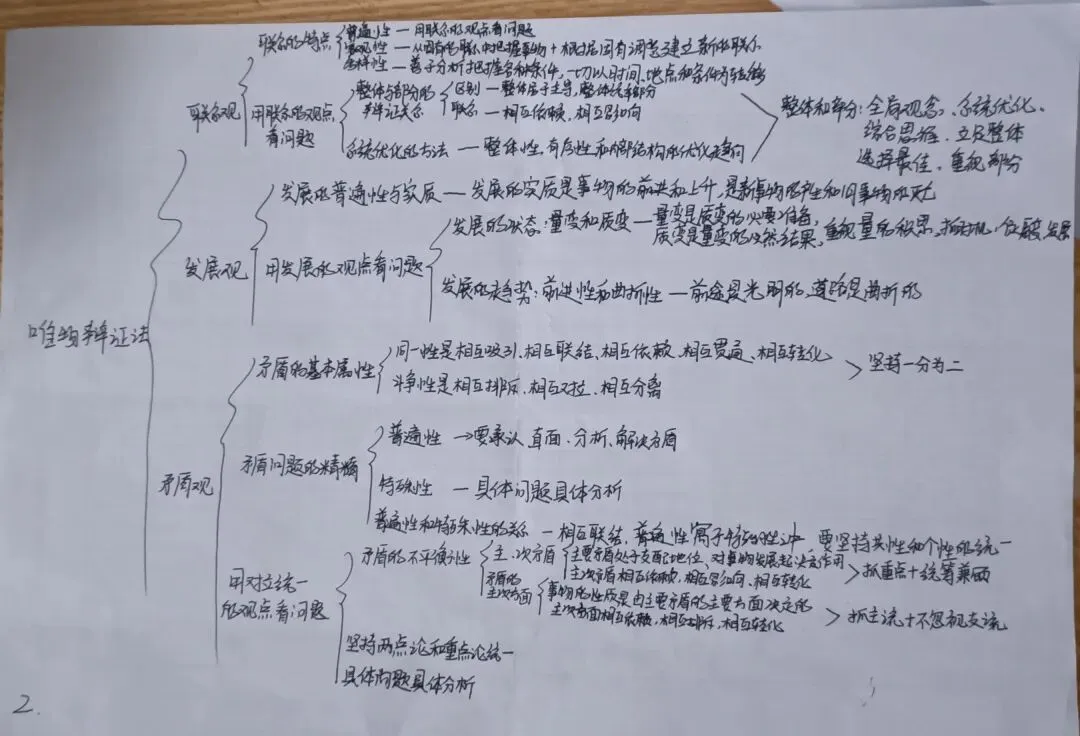 联系的特点 普遍性 — 用联系的观点看问题
客观性 — 从固有的联系中把握事物 + 根据固有联系建立新的联系
多样性 — 善于分析把握各种条件,一切以时间、地点和条件为转移
联系观 用联系的观点看问题
整体与部分的辩证关系 区别 — 整体居于主导,整体统率部分
联系 — 相互依赖,相互影响
系统优化的方法 — 整体性,有序性和内部结构的优化趋向
整体和部分:全局观念、系统优化、
综合思维、立足整体
选择最佳、重视部分
发展的普遍性与实质 — 发展的实质是事物的前进和上升,是新事物的产生和旧事物的灭亡
发展观 用发展的观点看问题
发展的状态:量变和质变 — 量变是质变的必要准备,
质变是量变的必然结果,重视量的积累,抓时机,促质变
发展的趋势:前进性和曲折性 — 前途是光明的,道路是曲折的
唯物辩证法
矛盾的基本属性 同一性是相互吸引、相互联结、相互依赖、相互贯通、相互转化
斗争性是相互排斥、相互对立、相互分离
坚持一分为二
矛盾观
矛盾问题的精髓 普遍性 →要承认 直面、分析、解决矛盾
特殊性 — 具体问题具体分析
普遍性和特殊性的关系 — 相互联结,普遍性寓于特殊性之中 要坚持共性和个性的统一
用对立统一
的观点看问题
矛盾的不平衡性 主、次矛盾 主要矛盾处于支配地位、对事物发展起决定作用
主次矛盾相互依赖,相互影响、相互转化
抓重点+统筹兼顾
矛盾的
主次方面
事物的性质是由主要矛盾的主要方面决定的
主次方面相互依赖,相互排斥,相互转化
抓主流+不忽视支流
坚持两点论和重点论统一
具体问题具体分析
2.